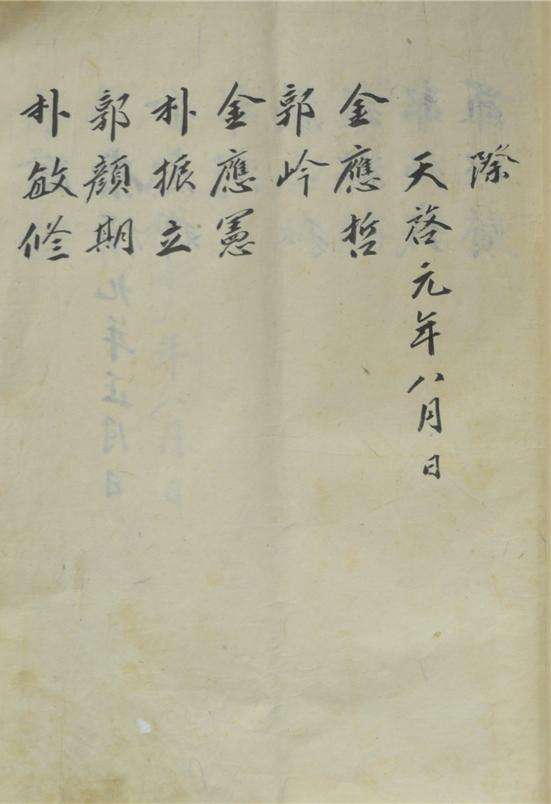 際
天啓元年八月日
金應哲
郭岭
金應憲
朴振立
郭顔期
朴敏修